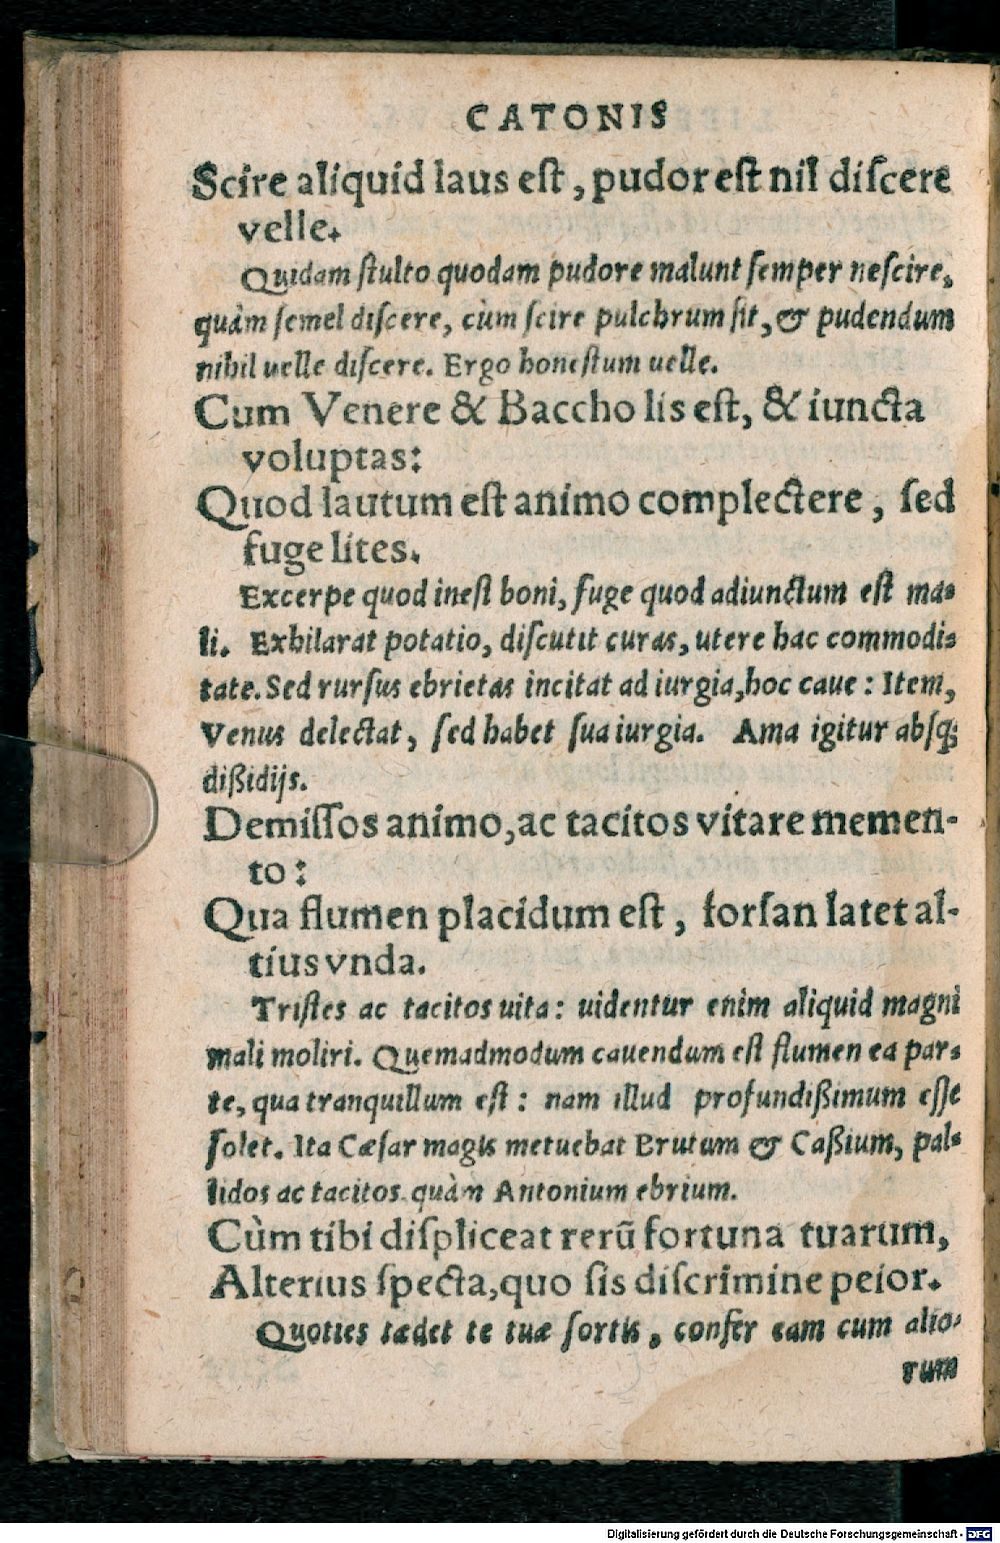 CATONIS
Scire aliquid laus eſt, pudor eſt nil diſcere
velle.
Quidam ſtulto quodam pudore malunt ſemper neſcire,
quàm ſemel diſcere, cùm ſcire pulchrum ſit, & pudendum
nihil uelle diſcere. Ergo honeſtum uelle.
Cum Venere & Baccho lis eſt, & iuncta
voluptas:
Quod lautum eſt animo complectere, ſed
fuge lites.
Excerpe quod ineſt boni, fuge quod adiunctum eſt ma-
li. Exhilarat potatio, diſcutit curas, utere hac commodi-
tate. Sed rurſus ebrietas incitat ad iurgia, hoc caue: Item,
Venus delectat, ſed habet ſua iurgia. Ama igitur abſq;
dißidijs.
Demiſſos animo, ac tacitos vitare memen-
to:
Qua flumen placidum eſt, forſan latet al-
tius vnda.
Triſtes ac tacitos uita: uidentur enim aliquid magni
mali moliri. Quemadmodum cauendum eſt flumen ea par-
te, qua tranquillum eſt: nam illud profundißimum eſſe
ſolet. Ita Cæſar magis metuebat Brutum & Caßium, pal-
lidos ac tacitos quàm Antonium ebrium.
Cùm tibi diſpliceat rerũ fortuna tuarum,
Alterius ſpecta, quo ſis diſcrimine peior.
Quoties tædet te tuæ ſortis, confer eam cum alio-
rum
Digitalisierung gefördert durch die Deutsche Forschungsgemeinschaft - DFG